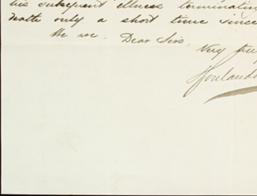 his subsequent illness terminating
death only a short time since
We are. Dear Sirs.
Very tru
Howland